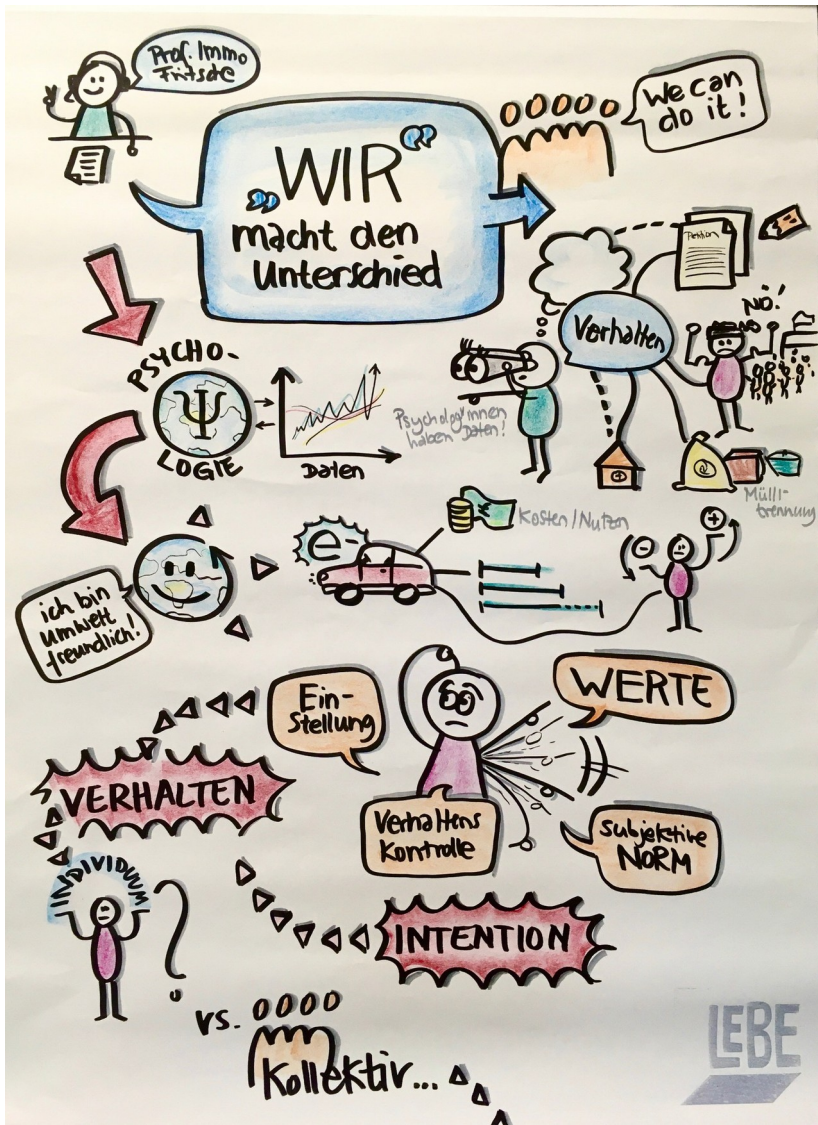 Prof. Immo
Fritsche
We can
do it!
„WIR“
macht den
Unterschied
Petition
Verhalten
NÖ!
PSYCHO-
LOGIE
Ψ
Daten
Psycholog*innen
haben Daten!
Müll-
trennung
Kosten/Nutzen
e-
ich bin
umwelt
freundlich!
- +
Ein-
stellung
WERTE
VERHALTEN
Verhaltens
Kontrolle
Subjektive
NORM
INDIVIDUUM
?
INTENTION
vs.
Kollektiv...
LEBE